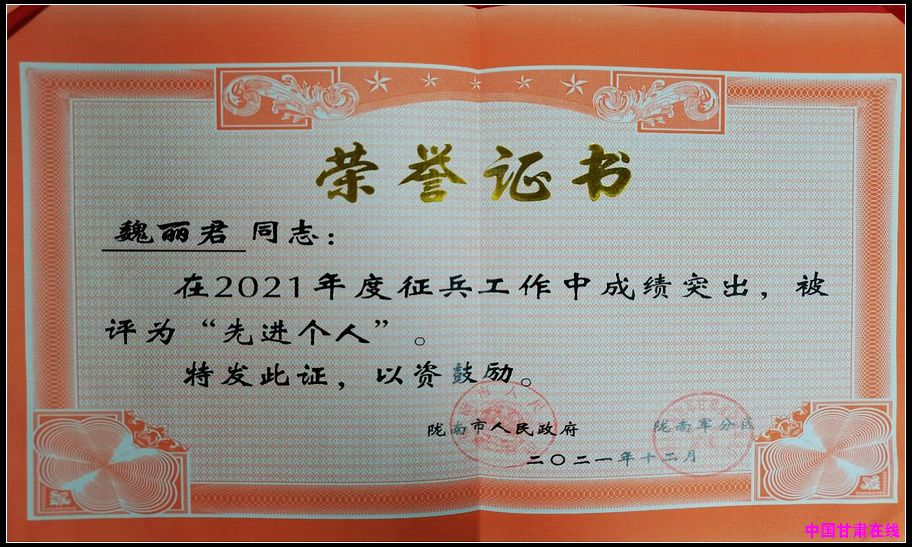 荣誉证书
魏丽君 同志：
在2021年度征兵工作中成绩突出，被
评为“先进个人”。
特发此证，以资鼓励。
陇南市人民政府 陇南军分区
二〇二一年十二月
中国甘肃在线